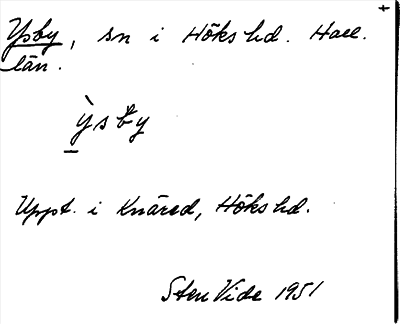 Ysby, sn i Höks hd. Hall.
län.
ỳsby
Uppt. i Knäred, Höks hd.
Sten Vide 1951